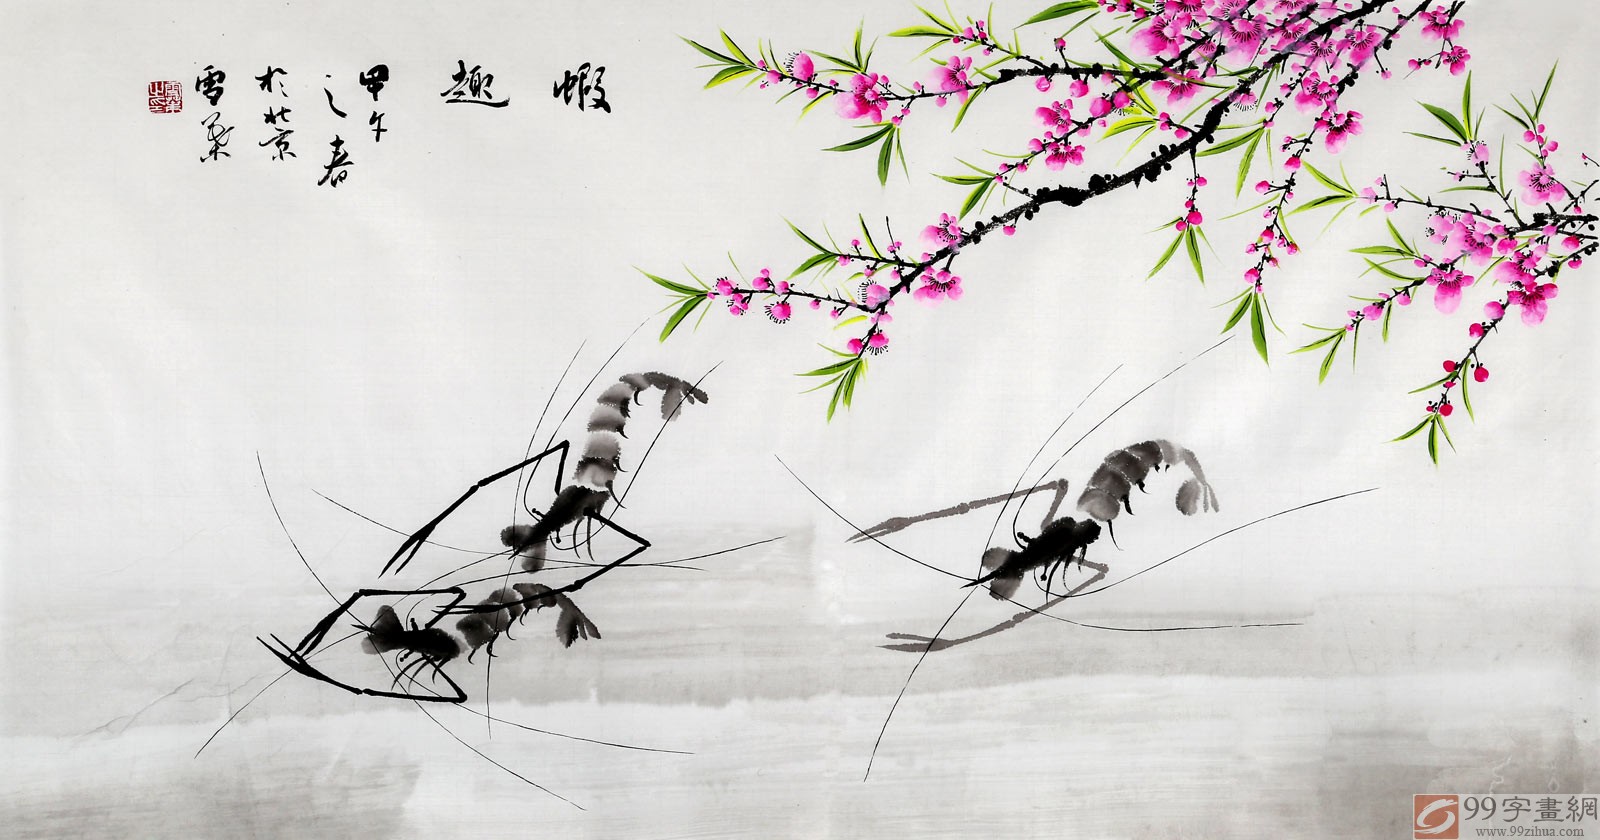 蝦趣
甲午
之春
於北京
雪葉
99字畫網
www.99zihua.com